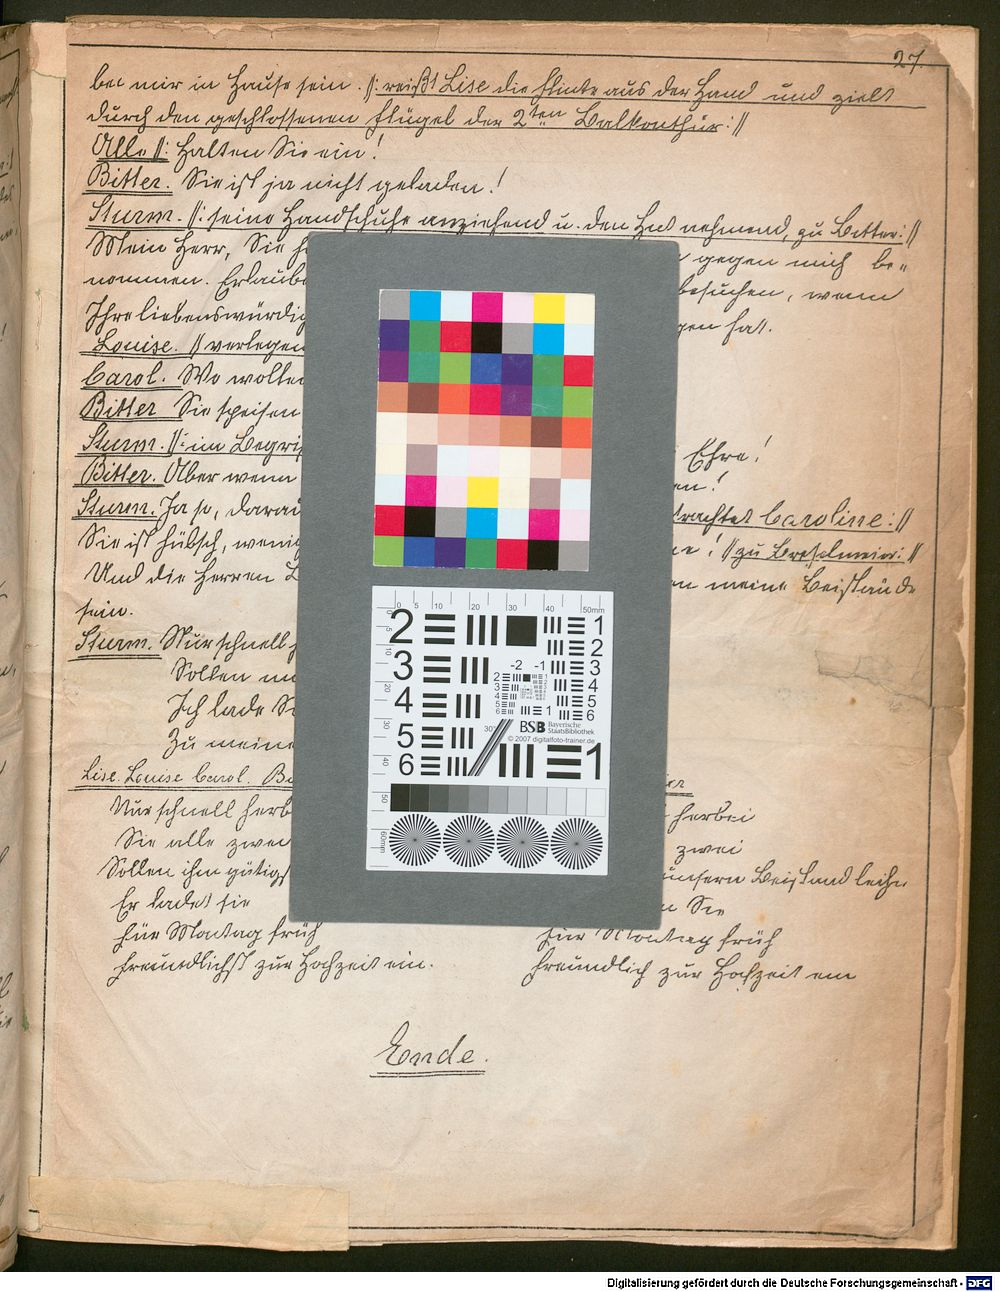 27.
bei mir in Hause sein. /: reißt Lise die Flinte aus der Hand und zielt
durch den geschlossenen Flügel der 2ten Balkonthür :/
Alle /: Halten Sie ein!
Bitter. Sie ist ja nicht geladen!
Sturm. /: seine Handschuhe anziehend u. den Hut nehmend, zu Bitter :/
Mein Herr, Sie h gegen mich be-
nommen. Erlaube besuchen, wenn
Ihre liebenswürdig gen hat.
Louise. /: verlegen
Carol. Wo wollen
Bitter Sie speisen
Sturm. /: im Begri Ehre!
Bitter. Aber wenn en!
Sturm. Ja so, darau trachtet Caroline :/
Sie ist hübsch, wenig ! /: zu
Und die Herren en meine Beistände
sein.
Sturm. Nur schnell
Sollen
Ich lade Si
Zu meine
Lise. Louise Carol. B
Nur schnell herb herbei
Sie alle zwei zwei
Sollen ihm gütigst unsern Beistand leihn
Er ladet sie Sie
für Montag früh für Montag früh
freundlichst zur Hochzeit ein. freundlich zur Hochzeit ein
Ende.
0 5 10 20 30 40 50mm
2 1
3 2
4 3
5 4
6 5
6
-2 -1
BSB Bayerische StaatsBibliothek
© 2007 digitalfoto-trainer.de
1
60mm
Digitalisierung gefördert durch die Deutsche Forschungsgemeinschaft - DFG